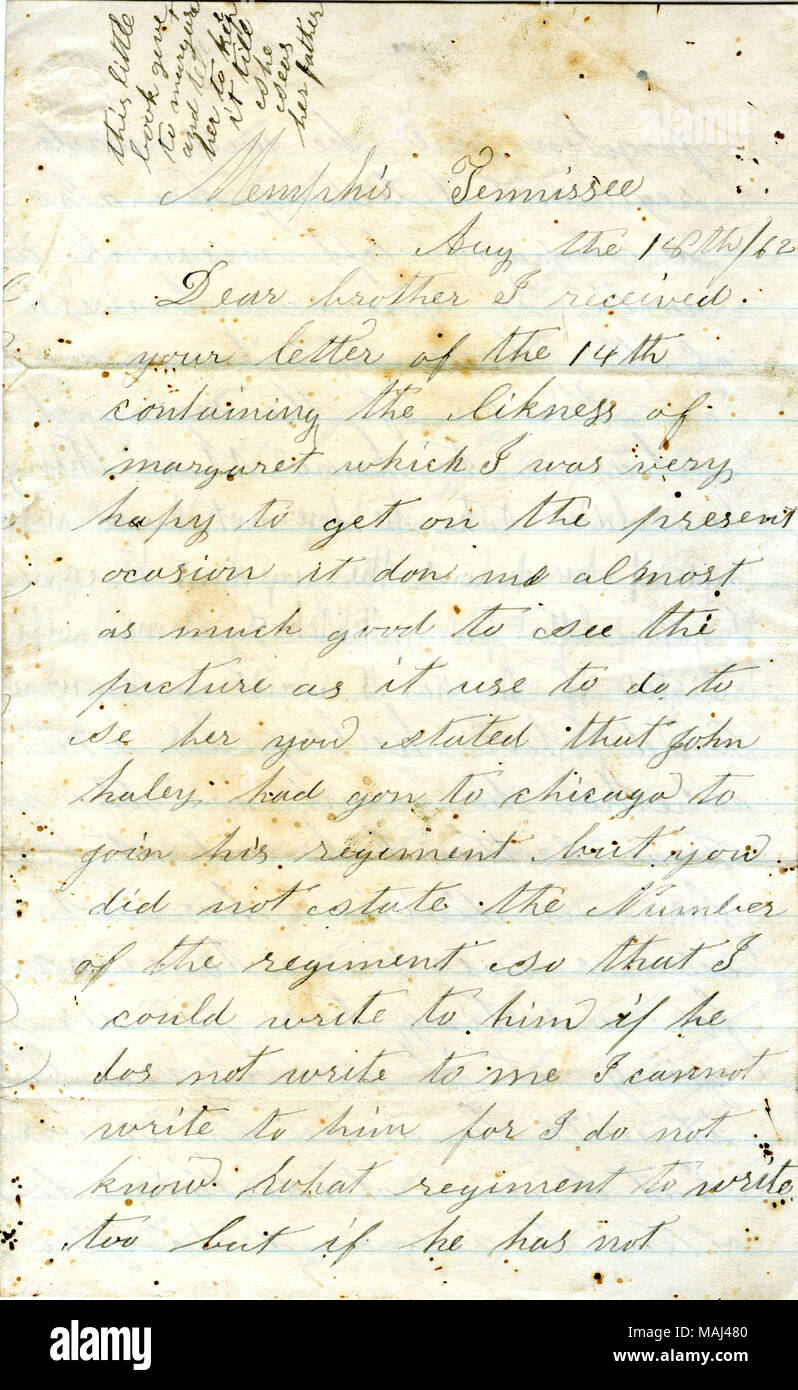 this little
book give
to margaret
and tell
her to kep
it till
she
sees
her father
Memphis Tennissee
Aug the 18th/62
Dear brother I received
your letter of the 14th
containing the likness of
margaret which I was very
hapy to get on the present
ocasion it don me almost
as much good to see the
picture as it use to do to
se her you stated that John
haley had gon to chicago to
join his regiment but you
did not state the Number
of the regiment so that I
could write to him if he
dos not write to me I cannot
write to him for I do not
know what regiment to write
too but if he has not
alamy
Image ID: MAJ480
www.alamy.com